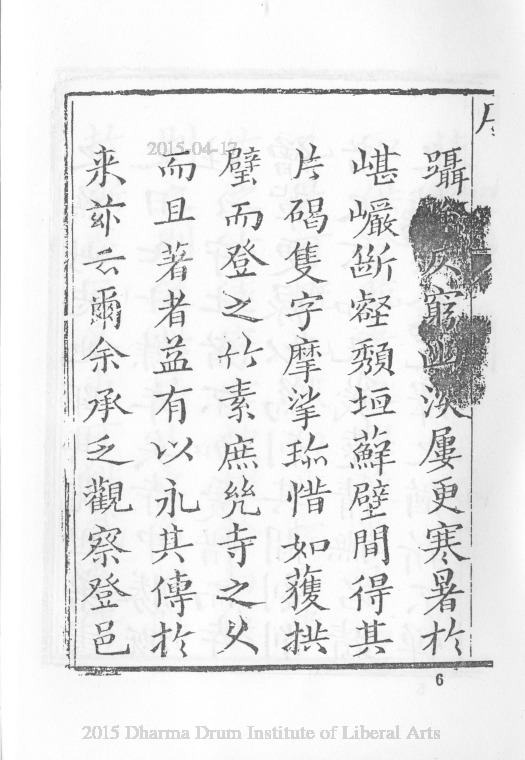 序
躡 灰窮 深屢更寒暑於
嵁巖斷壑頹垣蘚壁間得其
片碣隻字摩挲珎惜如獲拱
璧而登之竹素庶㡬寺之久
而且著者益有以永其傳扵
来玆云爾余承乏觀察登邑
6
2015-04-17
2015 Dharma Drum Institute of Liberal Arts